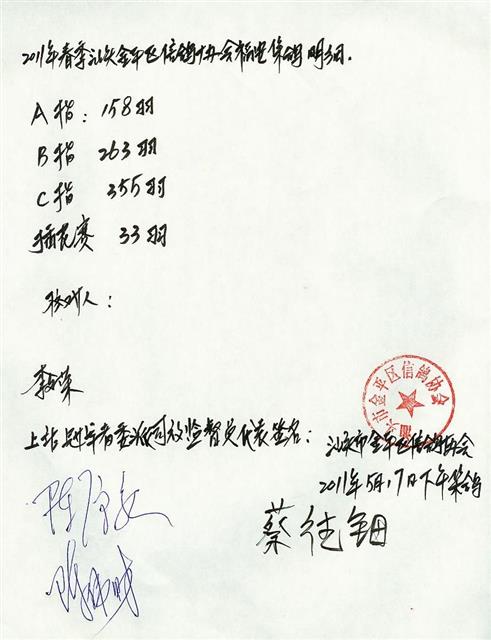 2011年春季汕头金平区信鸽协会福建集鸽明细.
A指：158羽
B指 263羽
C指 355羽
插花赛 33羽
核对人：
汕头市金平区信鸽协会
上站 委派司放监督员代表签名：
汕头市金平区信鸽协会
2011年5月17日下午集鸽
蔡